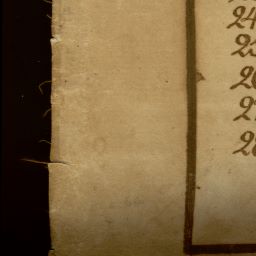 24
25
26
27
28